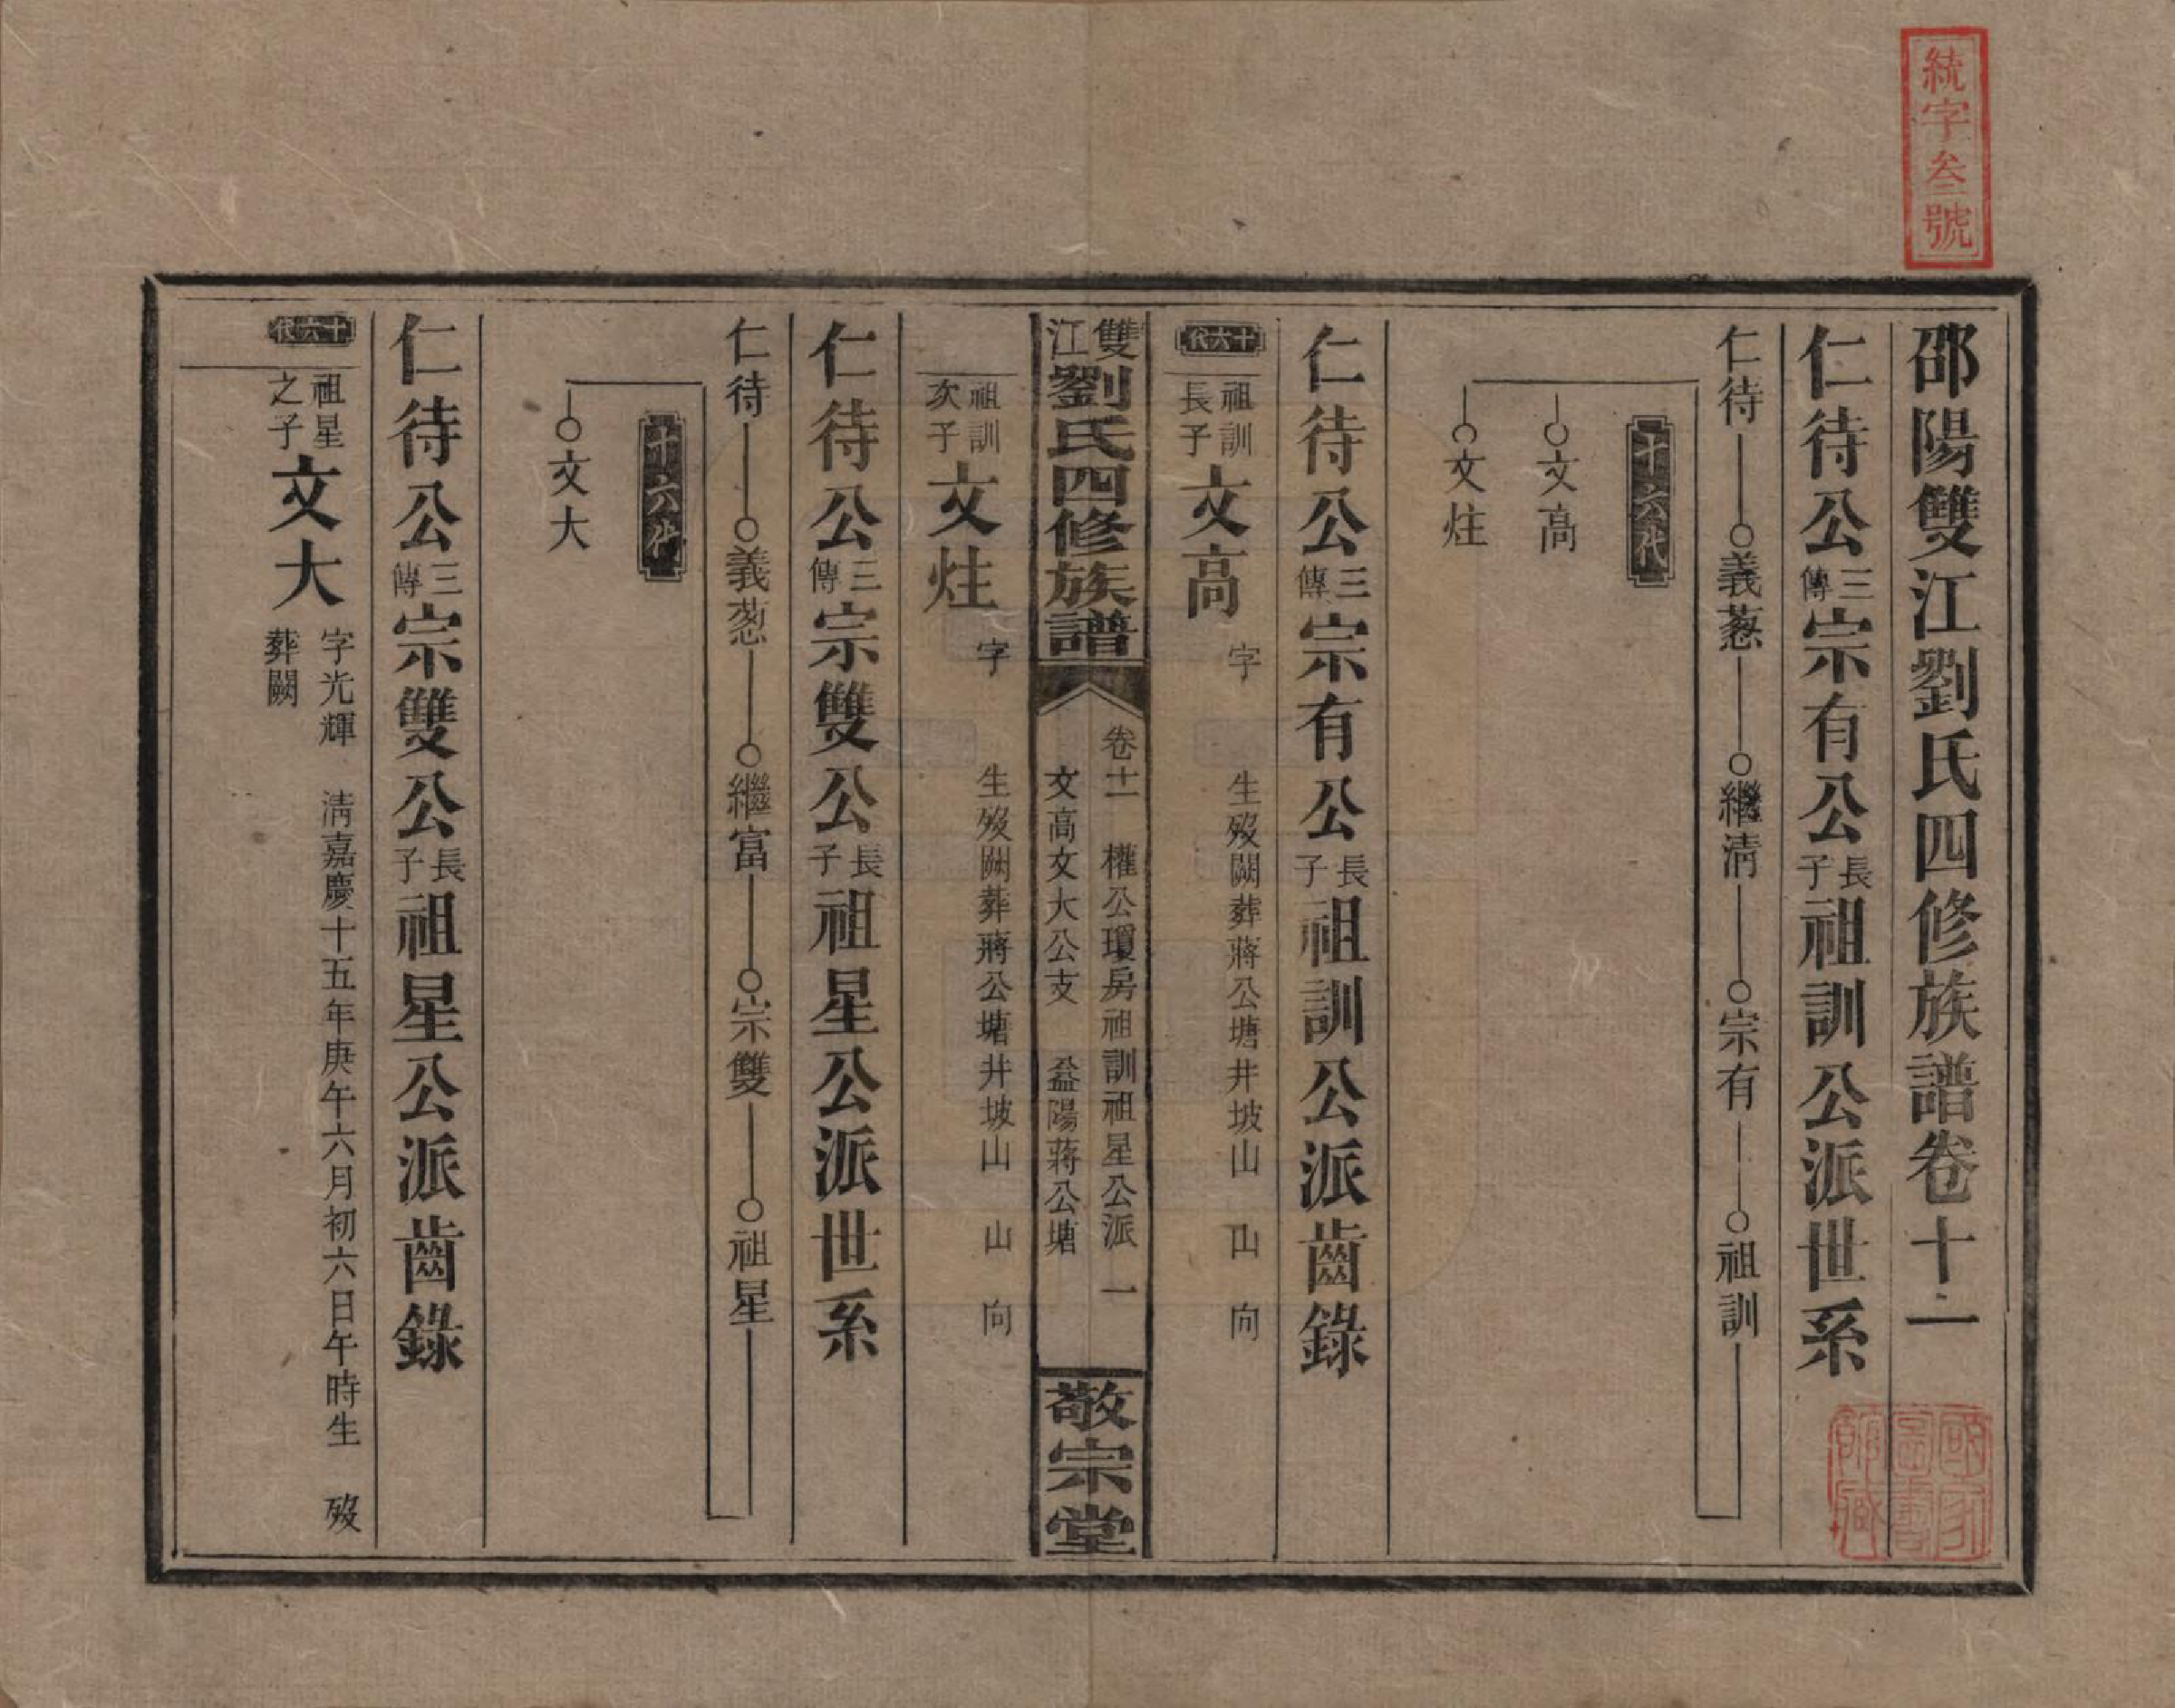 統字叁號
邵陽雙江劉氏四修族譜卷十一
仁待公三傳宗有公長子祖訓公派世系
仁待 義葱 繼清 宗有 祖訓
十六代
文高
文炷
仁待公三傳宗有公長子祖訓公派齒錄
十六代
祖訓長子文高 字 生歿闕葬蔣公塘井坡山 山 向
雙江劉氏四修族譜
卷十一 權公瓊房祖訓祖星公派 一
文高文大公支 益陽蔣公塘
敬宗堂
祖訓次子文炷 字 生歿闕葬蔣公塘井坡山 山 向
仁待公三傳宗雙公長子祖星公派世系
仁待 義葱 繼富 宗雙 祖星
十六代
文大
仁待公三傳宗雙公長子祖星公派齒錄
十六代
祖星之子文大 字光輝 清嘉慶十五年庚午六月初六日午時生 歿
葬闕
國家圖書館藏